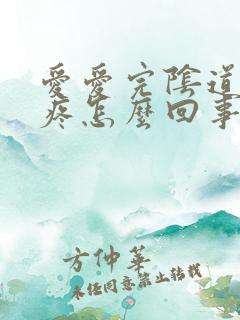 愛愛完陰道
疼怎麼回事
方仲華
未經同意禁止轉載